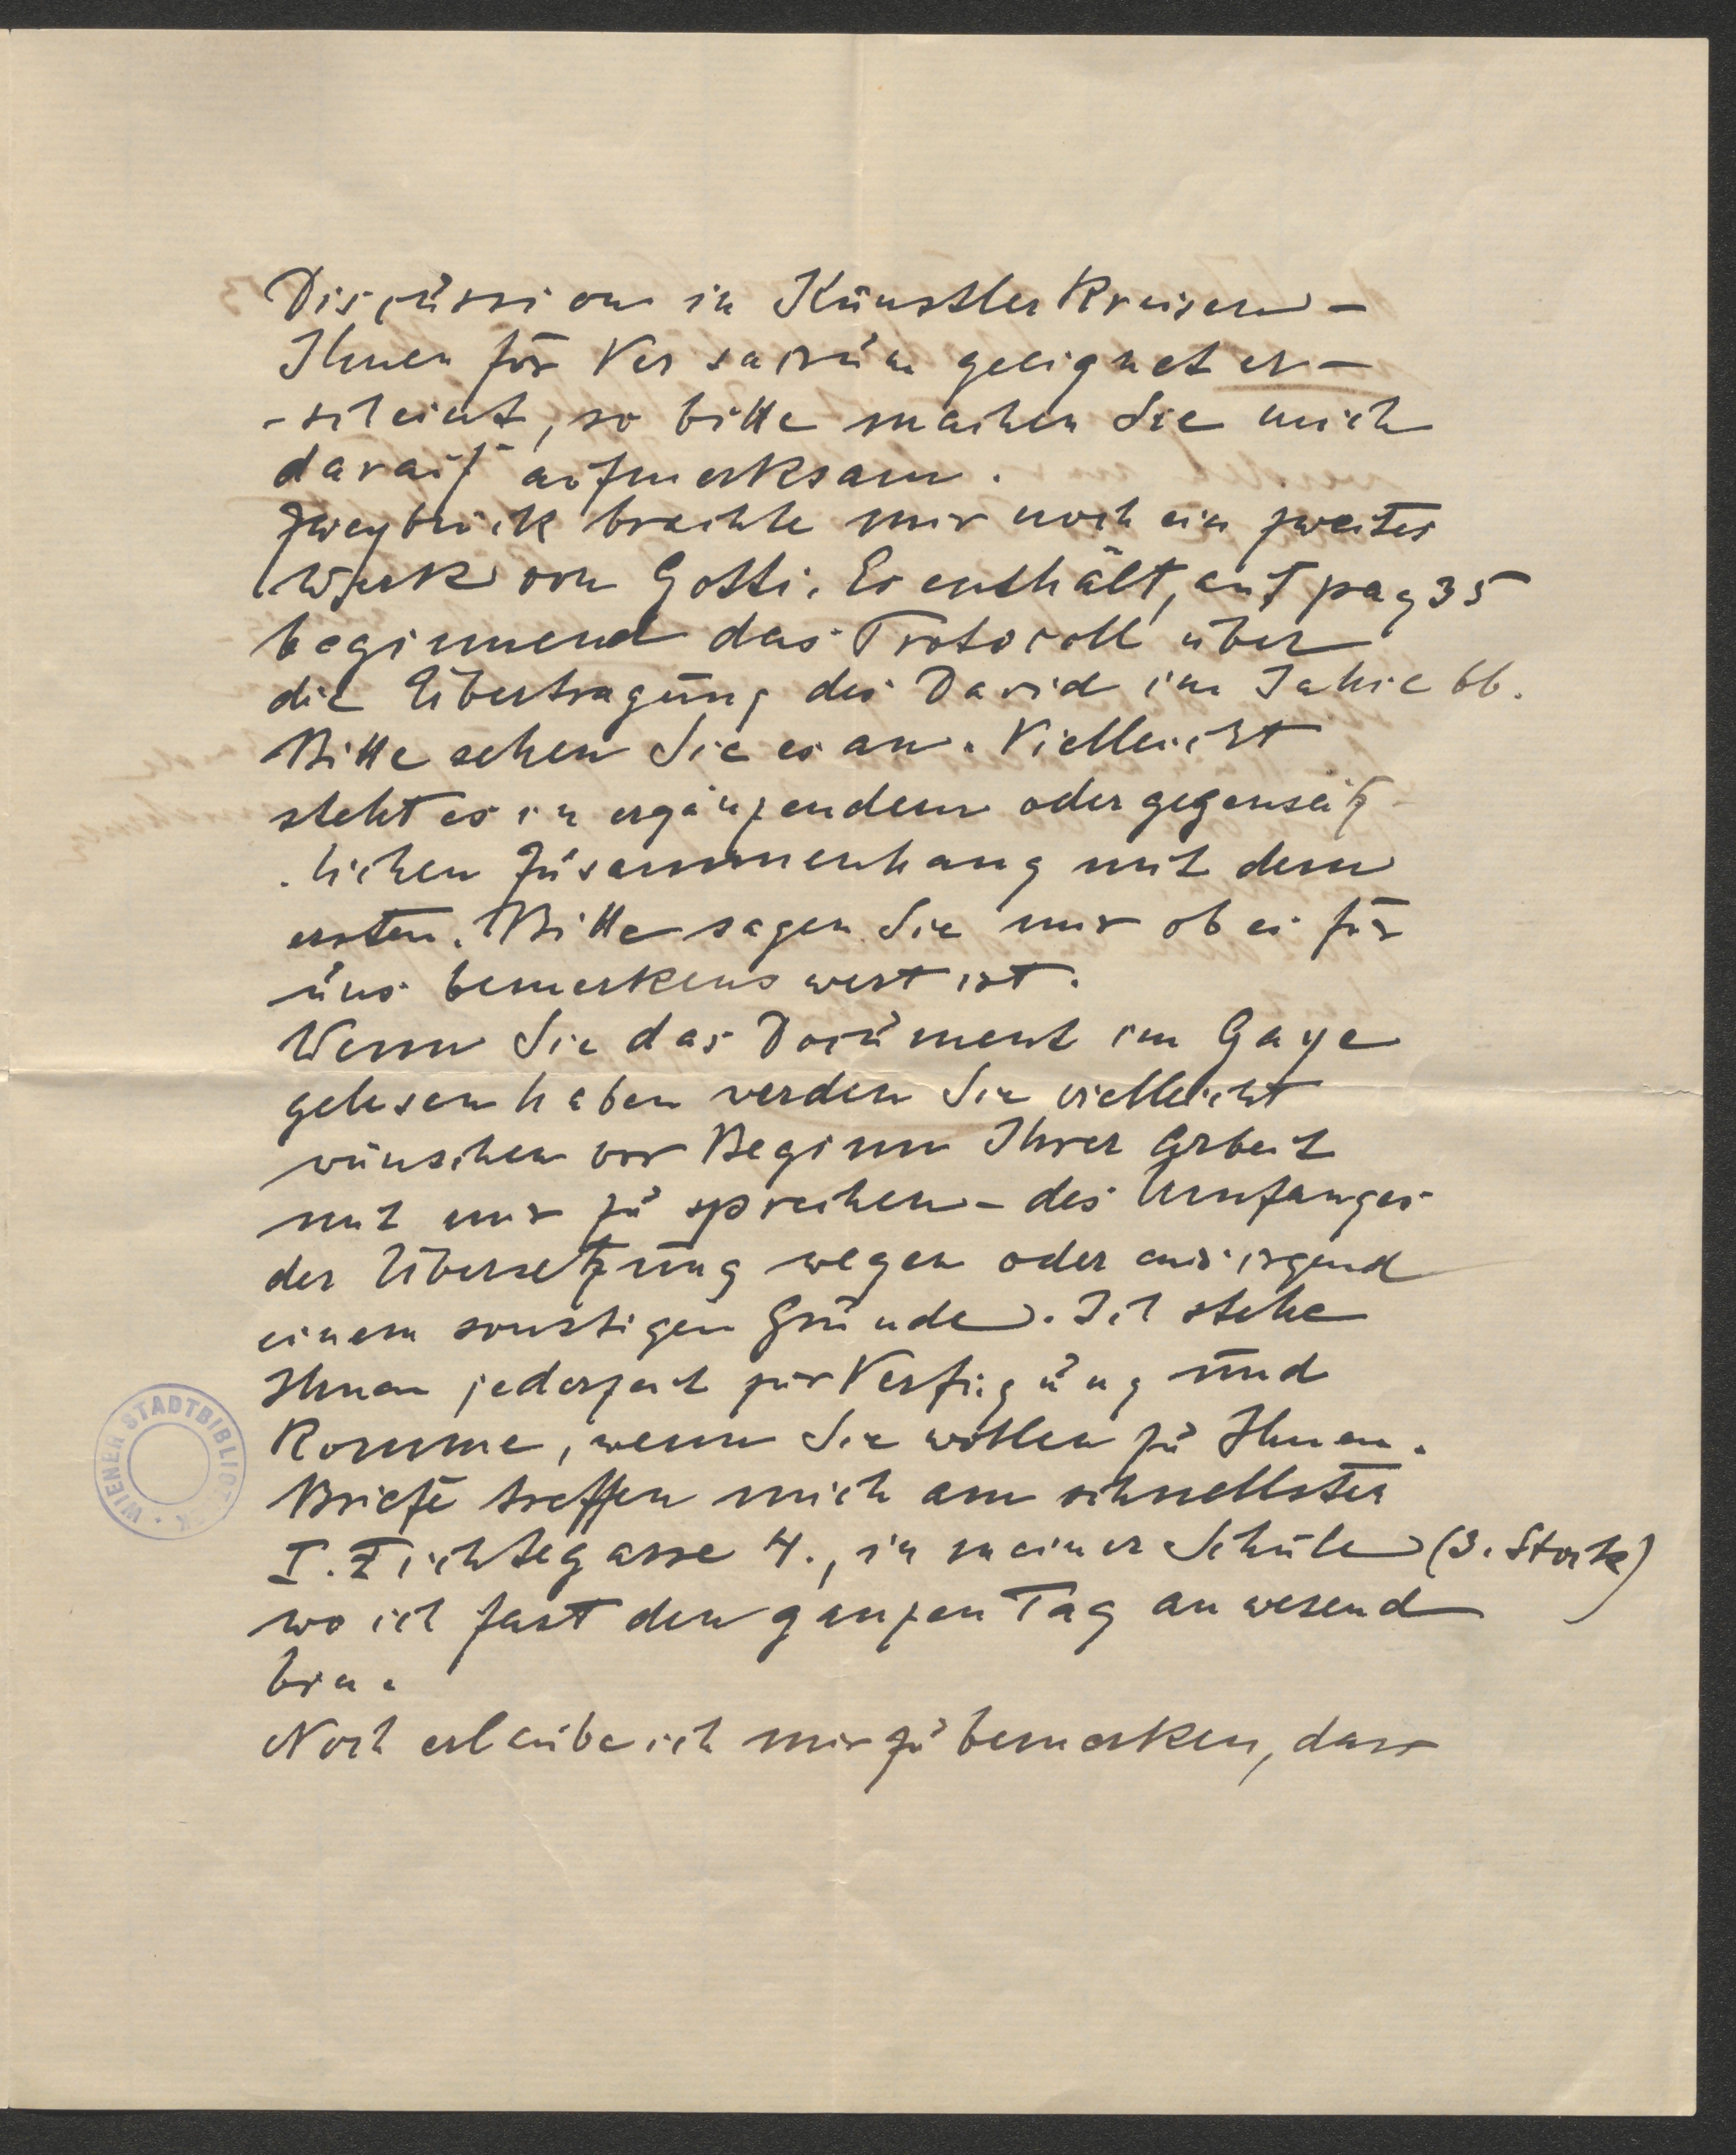 Discussion in Künstler Kreisen -
Ihnen für Ver sacrum geeignet er -
- scheint, so bitte machen Sie mich
darauf aufmerksam.
Zweybrück brachte mir noch ein zweites
Werk von Gotti. Es enthält, auf pag 35
beginnend das Protocoll über
die Übertragung des David im Jahre 66.
Bitte sehen Sie es an. Vielleicht
steht es in ergänzendem oder gegensätz
. lichen Zusammenhang mit dem
ersten. Bitte sagen Sie mir ob es für
uns bemerkenswert ist.
Wenn Sie das Document im Gaye
gelesen haben werden Sie vielleicht
wünschen vor Beginn Ihrer Arbeit
mit mir zu sprechen - des Umfanges
der Übersetzung wegen oder aus irgend
einem sonstigen Grunde. Ich stehe
Ihnen jederzeit zur Verfügung und
Komme, wenn Sie wollen zu Ihnen.
Briefe treffen mich am schnellsten
I. Fichtegasse 4., in meiner Schule (3. Stock)
wo ich fast den ganzen Tag anwesend
bin.
Noch erlaube ich mir zu bemerken, dass
WIENER STADTBIBLIOTEK